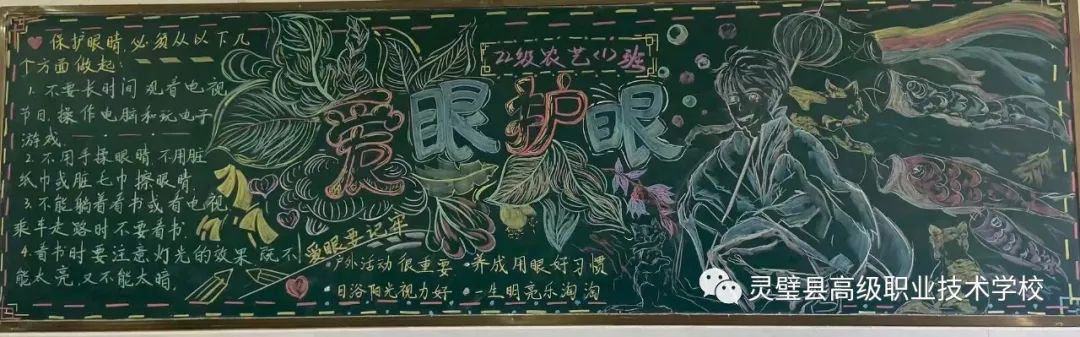 保护眼睛,必须从以下几
个方面做起:
1.不要长时间观看电视
节目,操作电脑和玩电子
游戏.
2.不用手揉眼睛不用脏
纸巾或脏毛巾擦眼睛.
3.不能躺着看书或看电视
乘车走路时不要看书.
4.看书时要注意灯光的效果,既不
能太亮,又不能太暗.
22级农艺(1)班
爱眼护眼
爱眼要记牢
·户外活动很重要 ·养成用眼好习惯
·日浴阳光视力好 ·一生明亮乐淘淘
灵璧县高级职业技术学校